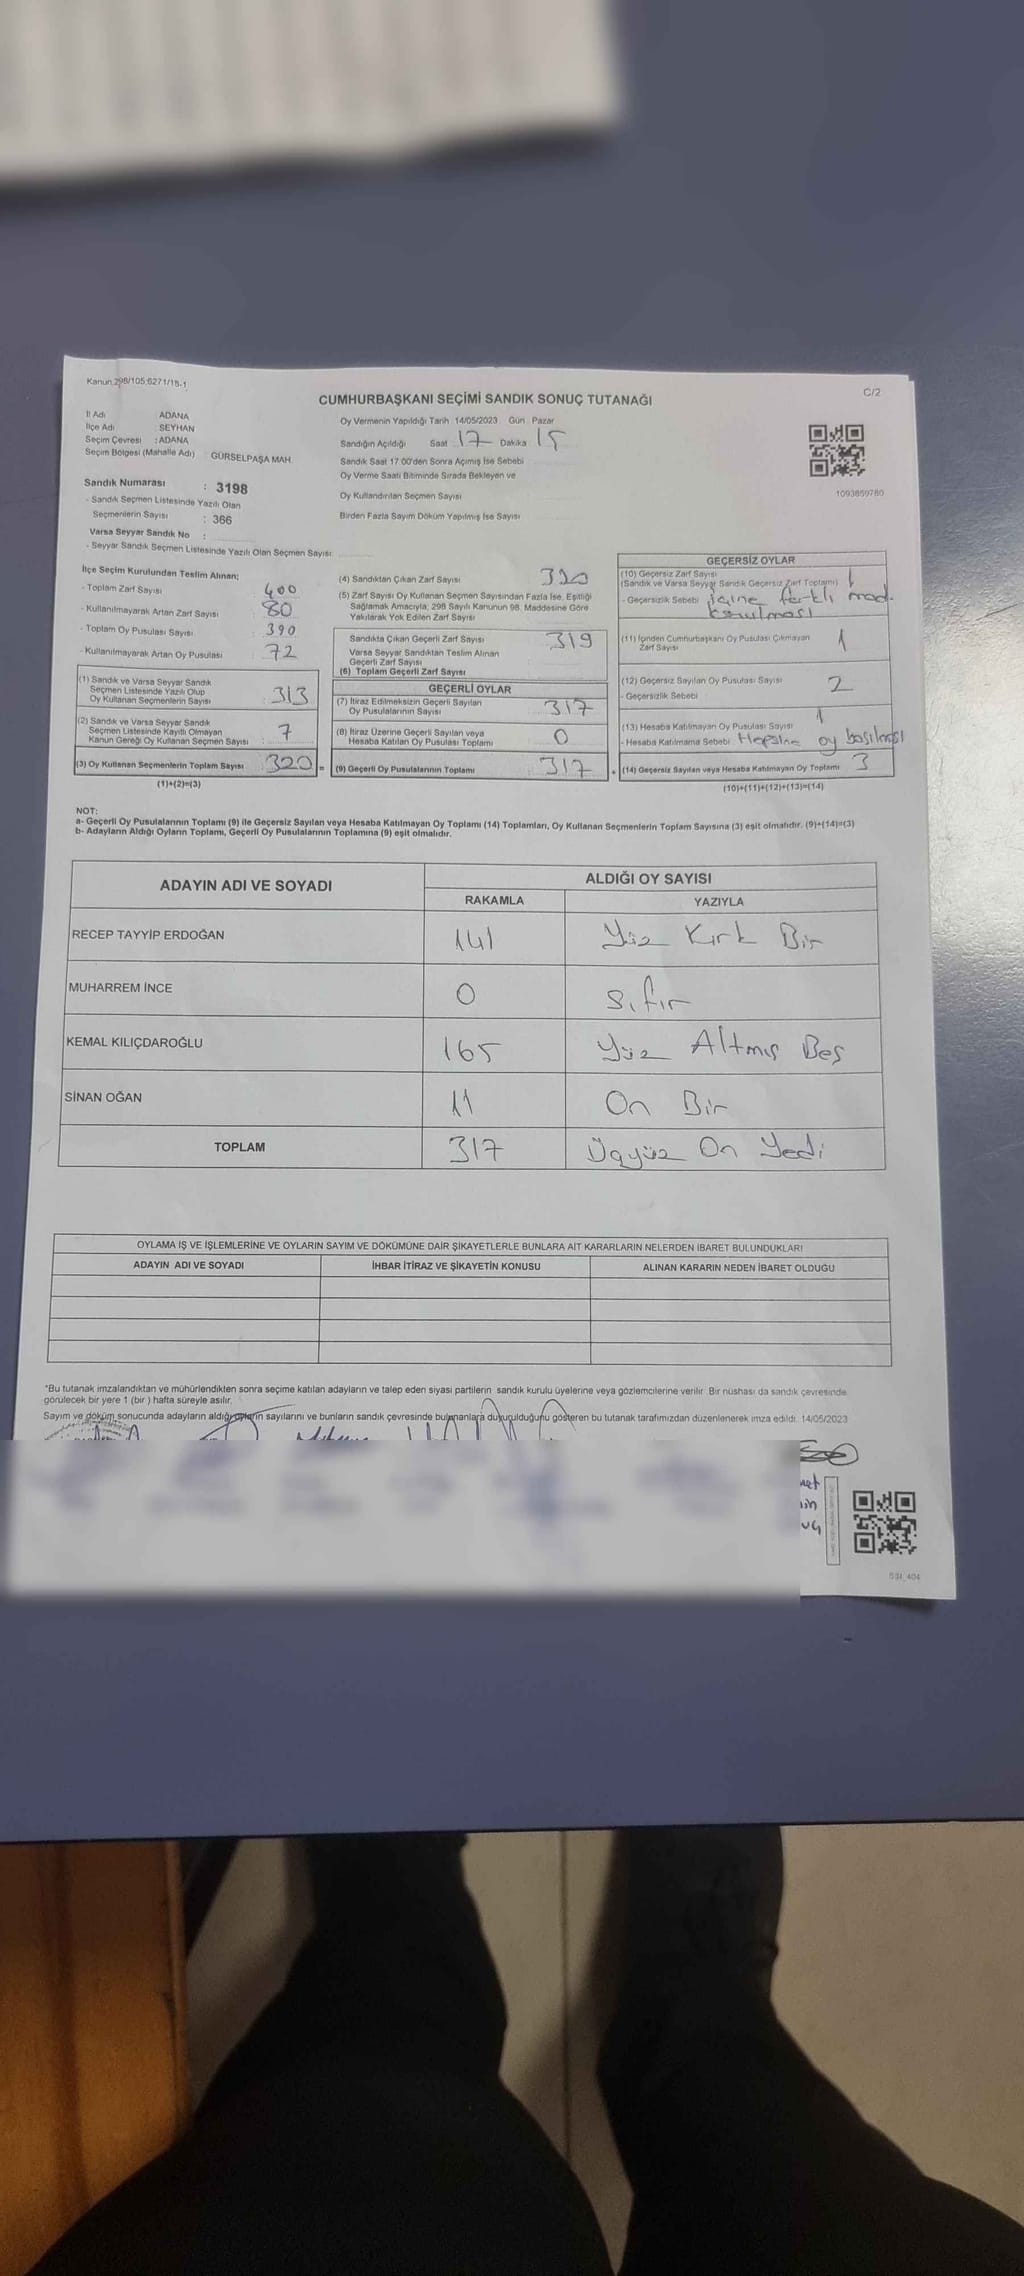 Kanun.298/105;6271/18-1
C/2
CUMHURBAŞKANI SEÇİMİ SANDIK SONUÇ TUTANAĞI
İl Adı : ADANA
İlçe Adı : SEYHAN
Seçim Çevresi : ADANA
Seçim Bölgesi (Mahalle Adı) GÜRSELPAŞA MAH.
Sandık Numarası : 3198
- Sandık Seçmen Listesinde Yazılı Olan
Seçmenlerin Sayısı : 366
Varsa Seyyar Sandık No :
- Seyyar Sandık Seçmen Listesinde Yazılı Olan Seçmen Sayısı
Oy Vermenin Yapıldığı Tarih 14/05/2023 Gün Pazar
Sandığın Açıldığı Saat 17 Dakika 15
Sandık Saat 17:00'den Sonra Açımış İse Sebebi
Oy Verme Saati Bitiminde Sırada Bekleyen ve
Oy Kullandırılan Seçmen Sayısı
Birden Fazla Sayım Döküm Yapılmış İse Sayısı
1093859780
İlçe Seçim Kurulundan Teslim Alınan;
- Toplam Zarf Sayısı : 400
- Kullanılmayarak Artan Zarf Sayısı : 80
- Toplam Oy Pusulası Sayısı : 390
- Kullanılmayarak Artan Oy Pusulası : 72
(1) Sandık ve Varsa Seyyar Sandık
Seçmen Listesinde Yazılı Olup
Oy Kullanan Seçmenlerin Sayısı : 313
(2) Sandık ve Varsa Seyyar Sandık
Seçmen Listesinde Kayıtlı Olmayan
Kanun Gereği Oy Kullanan Seçmen Sayısı : 7
(3) Oy Kullanan Seçmenlerin Toplam Sayısı 320 =
(1)+(2)=(3)
(4) Sandıktan Çıkan Zarf Sayısı 320
(5) Zarf Sayısı Oy Kullanan Seçmen Sayısından Fazla İse, Eşitliği
Sağlamak Amacıyla; 298 Sayılı Kanunun 98. Maddesine Göre
Yakılarak Yok Edilen Zarf Sayısı
Sandıkta Çıkan Geçerli Zarf Sayısı 319
Varsa Seyyar Sandıktan Teslim Alınan
Geçerli Zarf Sayısı
(6) Toplam Geçerli Zarf Sayısı
GEÇERLİ OYLAR
(7) İtiraz Edilmeksizin Geçerli Sayılan
Oy Pusulalarının Sayısı 317
(8) İtiraz Üzerine Geçerli Sayılan veya
Hesaba Katılan Oy Pusulası Toplamı 0
(9) Geçerli Oy Pusulalarının Toplamı 317 +
GEÇERSİZ OYLAR
(10) Geçersiz Zarf Sayısı 1
(Sandık ve Varsa Seyyar Sandık Geçersiz Zarf Toplamı)
- Geçersizlik Sebebi içine farklı mad.
konulması
(11) İçinden Cumhurbaşkanı Oy Pusulası Çıkmayan
Zarf Sayısı 1
(12) Geçersiz Sayılan Oy Pusulası Sayısı 2
- Geçersizlik Sebebi
(13) Hesaba Katılmayan Oy Pusulası Sayısı 1
- Hesaba Katılmama Sebebi Hepsine oy basılması
(14) Geçersiz Sayılan veya Hesaba Katılmayan Oy Toplamı 3
(10)+(11)+(12)+(13)=(14)
NOT:
a- Geçerli Oy Pusulalarının Toplamı (9) ile Geçersiz Sayılan veya Hesaba Katılmayan Oy Toplamı (14) Toplamları, Oy Kullanan Seçmenlerin Toplam Sayısına (3) eşit olmalıdır. (9)+(14)=(3)
b- Adayların Aldığı Oyların Toplamı, Geçerli Oy Pusulalarının Toplamına (9) eşit olmalıdır.
ADAYIN ADI VE SOYADI ALDIĞI OY SAYISI
RAKAMLA YAZIYLA
RECEP TAYYİP ERDOĞAN 141 Yüz Kırk Bir
MUHARREM İNCE 0 Sıfır
KEMAL KILIÇDAROĞLU 165 Yüz Altmış Beş
SİNAN OĞAN 11 On Bir
TOPLAM 317 Üçyüz On Yedi
OYLAMA İŞ VE İŞLEMLERİNE VE OYLARIN SAYIM VE DÖKÜMÜNE DAİR ŞİKAYETLERLE BUNLARA AİT KARARLARIN NELERDEN İBARET BULUNDUKLARI
ADAYIN ADI VE SOYADI İHBAR İTİRAZ VE ŞİKAYETİN KONUSU ALINAN KARARIN NEDEN İBARET OLDUĞU
*Bu tutanak imzalandıktan ve mühürlendikten sonra seçime katılan adayların ve talep eden siyasi partilerin sandık kurulu üyelerine veya gözlemcilerine verilir. Bir nüshası da sandık çevresinde
görülecek bir yere 1 (bir ) hafta süreyle asılır.
Sayım ve döküm sonucunda adayların aldığı oyların sayılarını ve bunların sandık çevresinde bulunanlara duyurulduğunu gösteren bu tutanak tarafımızdan düzenlenerek imza edildi. 14/05/2023